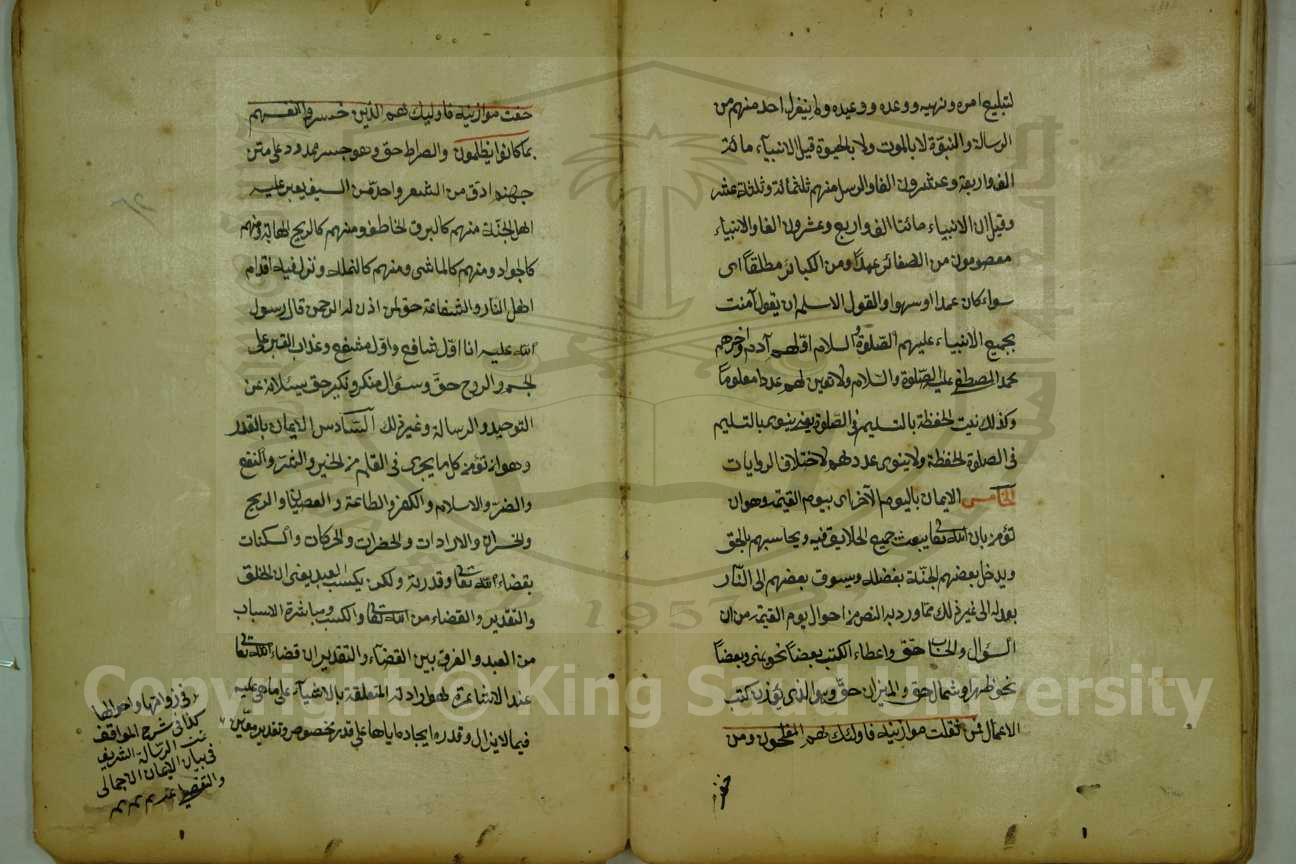 لتبليغ امره ونهيه ووعده ووعيده ولم ينعزل احد منهم من
الرسالة والنبوّة لا بالموت ولا بالحيوة قيل الانبياء مائة
الف واربعة وعشرون الفا والرسل منهم ثلثمائة وثلثة عشر
وقيل ان الانبياء مائتا الف واربع وعشرون الفا والانبياء
معصومون من الصغائر عمداً ومن الكبائر مطلقاً اى
سواء كان عمدا او سهوا والقول الاسلم ان يقول آمنت
بجميع الانبياء عليهم الصلوة والسلام اوّلهم آدم وآخرهم
محمد المصطفى عليه الصلوة والسلام ولا تعين لهم عددا معلوماً
وكذلك نيت الحفظة بالتسليم فى الصلوة يعنى ينوى بالتسليم
فى الصلوة الحفظة ولا ينوى عددهم لاختلاف الروايات
الخامس الايمان باليوم الآخر اى بيوم القيمة وهو ان
تؤمن بان الله تعالى يبعث جميع الخلايق فيه ويحاسبهم بالحق
ويدخل بعضهم الجنّة بفضله ويسوق بعضهم الى النّار
بعدله الى غير ذلك مما ورد به النص من احوال يوم القيمة من ان
السؤال والحساب حقّ واعطاء الكتب بعضاً نحو يمنى وبعضاً
نحو ظهر او شمال حق والميزان حقّ وهو الذى يوزن به كتب
الاعمال فمن ثقلت موازينه فاولئك هم المفلحون ومن
خفت
خفت موازينه فاوليك هم الذين خسروا انفسهم
بما كانوا يظلمون والصراط حق وهو جسر ممدود على متن
جهنم ادق من الشعر واحدّ من السيف يعبر عليه
اهل الجنّة منهم كالبرق الخاطف ومنهم كالريح الهابة ومنهم
كالجواد ومنهم كالماشى ومنهم كالنملة وتزل فيه اقدام
اهل النار والشفاعة حق لمن اذن له الرحمن قال رسول
الله عليه انا اوّل شافع واوّل مشفع وعذاب القبر على
الجسم والروح حقّ وسؤال منكر ونكير حق يسئلانه عن
التوحيد والرسالة وغير ذلك السّادس الايمان بالقدر
وهو ان تؤمن كل ما يجرى فى القلم من الخير والشر والنفع
والضرّ والاسلام والكفر والطاعة والعصيان والربح
والخسران والارادات والخطرات والحركات والسكنات
بقضاء الله تعالى وقدرته ولكن يكسب العبد يعنى ان الخلق
والتقدير والقضاء من الله تعالى والكسب ومباشرة الاسباب
من العبد والفرق بين القضاء والتقدير ان قضاء الله تعالى
عند الاشاعرة هو ارادته المتعلقة بالاشياء على ما هى عليه
فيما لا يزال وقدره ايجاده اياها على قدر مخصوص وتقدير معيّن
فى ذواتها واحوالها
كذا فى شرح المواقف
تمت الرسالة الشريفة
فى بيان الايمان الاجمالى
والتفصيلى
1957
Copyright © King Saud University